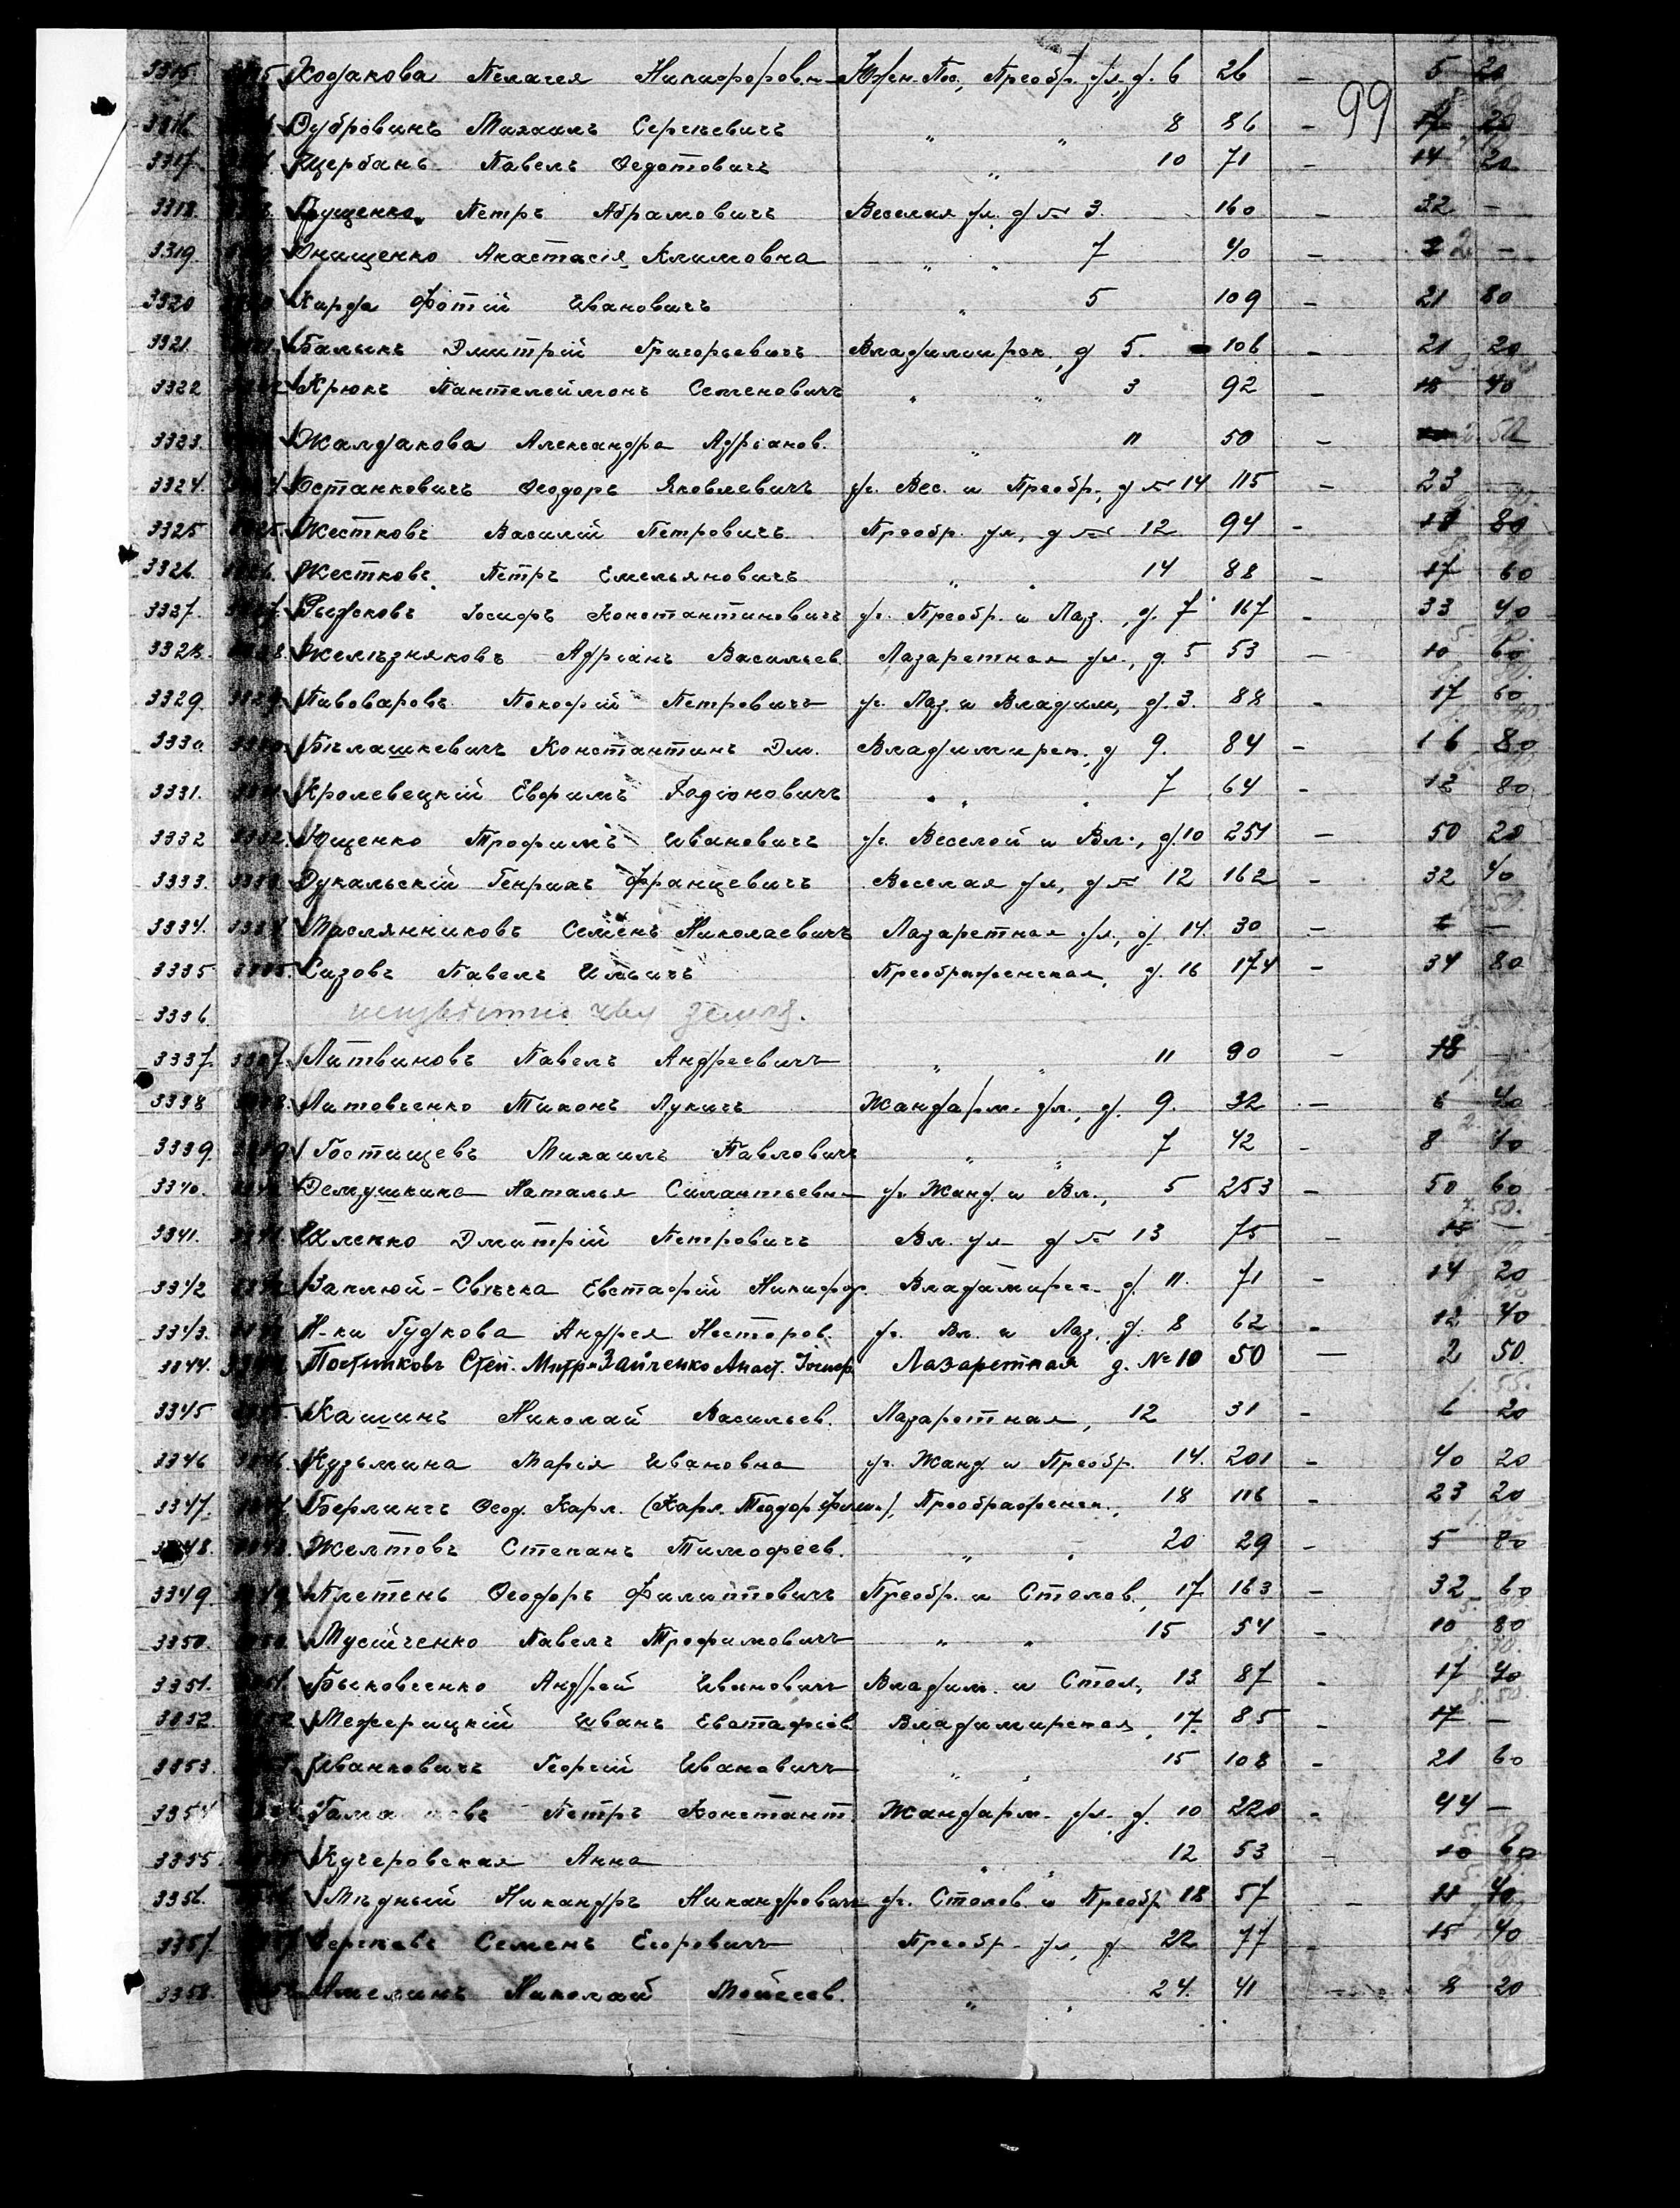 99
3315. Ходакова Пелагея Никифоровн Южн. Пос., Преобр. ул., д. 6 26 – 5 20
3316 Дубровинъ Михаилъ Сергѣевичъ " " 8 86 – 17 20
3317. Щербань Павелъ Ѳедотовичъ " 10 71 – 14 20
3318. Гущенко Петръ Абрамовичъ Веселая ул. д № 3. 160 – 32 –
3319. Онищенко Анастасія Климовна " " 7 40 – 2 –
3320 Фотій Ивановичъ " 5 109 – 21 80
3321. Балыкъ Дмитрій Григорьевичъ Владимирск., д 5. 106 – 21 20
3322 Крюкъ Пантелеймонъ Семеновичъ " " 3 92 – 18 40
3323. Жалдакова Александра Адріанов. " 11 50 – 2 50
3324. Останковичъ Ѳеодоръ Яковлевичъ уг. Вес. и Преобр., д № 14 115 – 23 –
3325 Жестковъ Василій Петровичъ Преобр. ул., д № 12 94 – 18 80
3326. Жестковъ Петръ Емельяновичъ " " 14 88 – 17 60
3327. Рыжковъ Іосифъ Константиновичъ уг. Преобр. и Лаз., д. 7 167 – 33 40
3328. Желѣзняковъ Адріанъ Васильев. Лазаретная ул., д. 5 53 – 10 60
3329. Пивоваровъ Прокофій Петровичъ уг. Лаз. и Владим., д. 3. 88 – 17 60
3330 Бѣлашкевичъ Константинъ Дм. Владимирск., д 9. 84 – 16 80
3331. Кролевецкій Евфимъ Родіоновичъ " " " 7 64 – 12 80
3332 Ющенко Трофимъ Ивановичъ уг. Веселой и Вл., д. 10 251 – 50 20
3333. Дукальскій Генрихъ Францевичъ Веселая ул., д № 12 162 – 32 40
3334. Маслянниковъ Семенъ Николаевичъ Лазаретная ул., д. 14. 30 – 6 –
3335 Сизовъ Павелъ Ильичъ Преображенская, д. 16 174 – 34 80
3336. неизвѣстно чья земля.
3337. Литвиновъ Павелъ Андреевичъ " " 11 90 – 18 –
3338 Литовченко Тихонъ Лукичъ Жандарм. ул., д. 9. 32 – 6 40
3339. Гостищевъ Михаилъ Павловичъ " " 7 42 – 8 40
3340. Демушкина Наталья Силантьевна уг. Жанд. и Вл., 5 253 – 50 60
3341. Шленко Дмитрій Петровичъ Вл. ул д № 13 75 – 15 –
3342 Заплюй-Свѣчка Евстафій Никифор. Владимірск. д. 11. 71 – 14 20
3343. Н-ки Гудкова Андрея Несторов. уг. Вл. и Лаз. д. 8 62 – 12 40
3344. Постниковъ Степ. Митр. и Зайченко Анаст. Іосиф. Лазаретная д. № 10 50 – 2 50.
3345 Кашинъ Николай Васильев. Лазаретная, 12 31 – 6 20
3346 Кузьмина Марія Ивановна уг. Жанд. и Преобр. 14. 201 – 40 20
3347. Берлингъ Ѳеод. Карл. (Карл. Теодор. Филип.), Преображенск., 18 116 – 23 20
3348. Желтовъ Степанъ Тимофеев. " " 20 29 – 5 80
3349. Плетень Ѳеодоръ Филипповичъ Преобр. и Столов., 17 163 – 32 60
3350. Мусійченко Павелъ Трофимовичъ " " 15 54 – 10 80
3351. Быковченко Андрей Ивановичъ Владим. и Стол., 13 87 – 17 40
3352. Межерицкій Иванъ Евстафіев. Владимирская, 17. 85 – 17 –
3353. Иванковичъ Георгій Ивановичъ " " 15 108 – 21 60
3354 Петръ Констант. Жандарм. ул. д. 10 220 – 44 –
3355 Кучеровская Анна " " 12 53 – 10 60
3356. Мѣдный Никандръ Никандровичъ уг. Столов. и Преобр. 18 57 – 11 40
3357. Сергѣевъ Семенъ Егоровичъ Преобр. ул, д. 22 77 – 15 40
3358. Амелинъ Николай Мойсеев. " " 24. 41 – 8 20